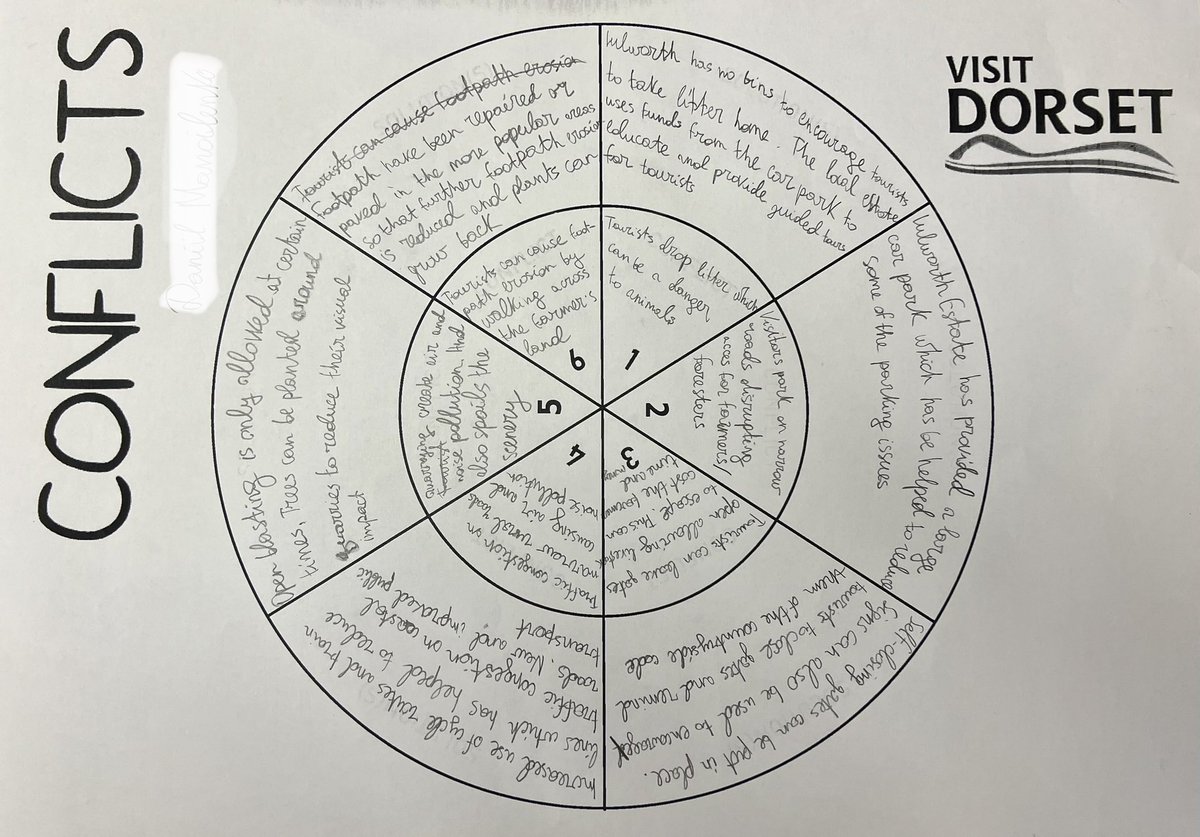 CONFLICTS
VISIT
DORSET
Tourists drop litter which
can be a danger
to animals
1
Lulworth has no bins to encourage tourists
to take litter home. The local estate
uses funds from the car park to
educate and provide guided tours
for tourists
Visitors park on narrow
roads disrupting
acces for farmers
foresters
2
Lulworth Estate has provided a large
car park which has be helped to reduce
some of the parking issues
Tourists can leave gates
open allowing livestock
to escape. This can
cost the farmer
time and money
3
Self-closing gates can be put in place.
Signs can also be used to encourage
tourists to close gates and remind
them of the countryside code
Traffic congestion on
narrow rural roads
causing air and
noise pollution
4
Increased use of cycle routes and train
lines which has helped to reduce
traffic congestion on coastal
roads. New and improved public
transport
Quarrying create air and
noise pollution that
also spoils the
scenery
5
Open blasting is only allowed at certain
times, Trees can be planted around
quarries to reduce their visual
impact
Tourists can cause foot-
path erosion by
walking across
the farmer's
land
6
Tourists can cause footpath erosion
Footpath have been repaired or
paved in the more popular areas
so that further footpath erosion
is reduced and plants can
grow back